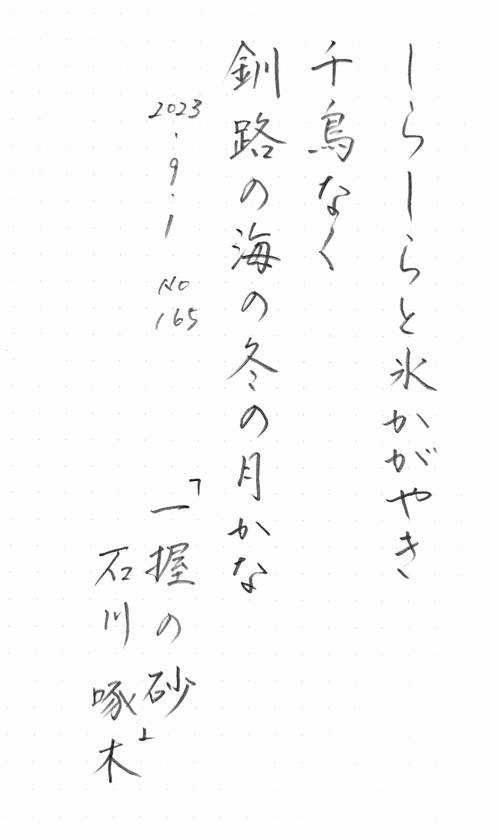 しらしらと氷かがやき
千鳥なく
釧路の海の冬の月かな
2023・9・1 No 165
「一握の砂」
石川啄木